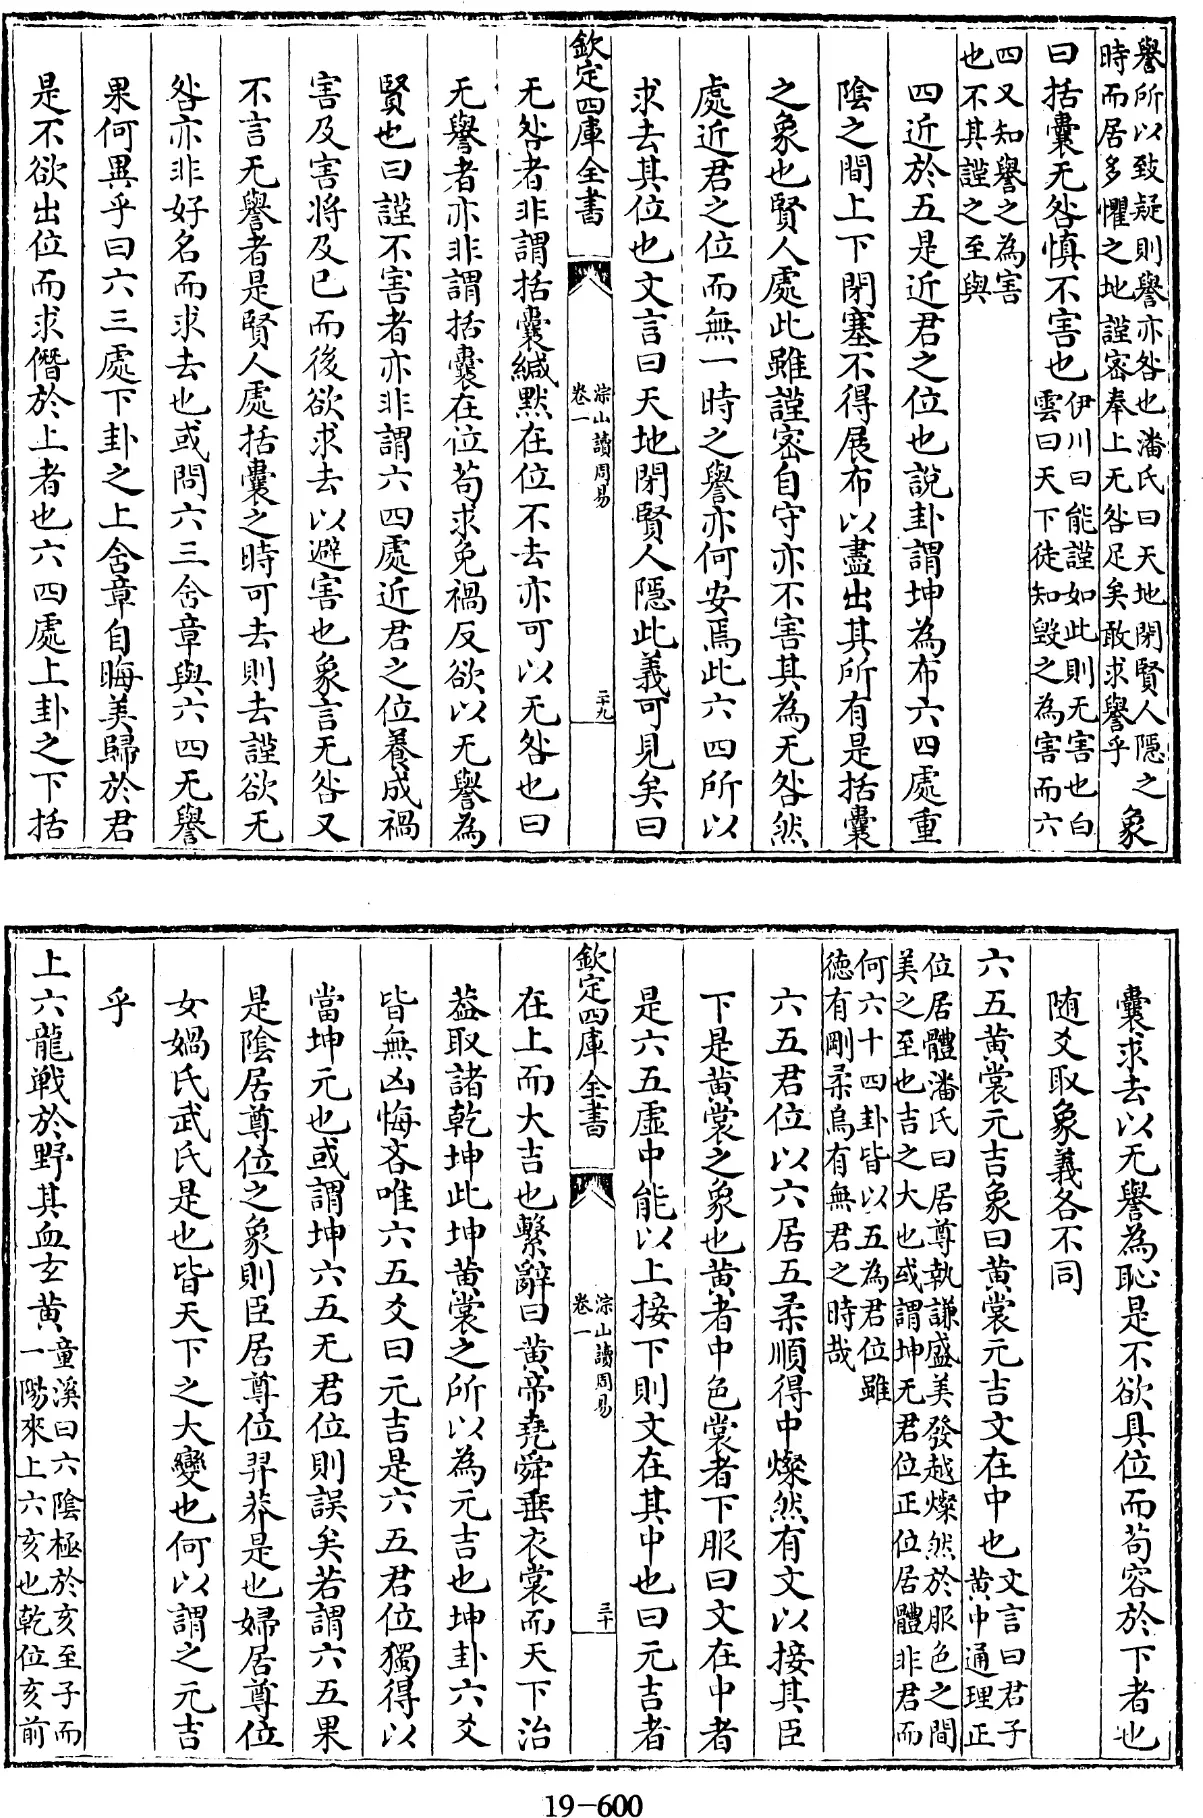 譽所以致疑則譽亦咎也潘氏曰天地閉賢人隱之
時而居多懼之地謹密奉上无咎足矣敢求譽乎
象
曰括囊无咎慎不害也
伊川曰能謹如此則无害也白
雲曰天下徒知毁之為害而六
四又知譽之為害
也不其謹之至與
四近於五是近君之位也說卦謂坤為布六四處重
陰之間上下閉塞不得展布以盡出其所有是括囊
之象也賢人處此雖謹密自守亦不害其為无咎然
處近君之位而無一時之譽亦何安焉此六四所以
求去其位也文言曰天地閉賢人隱此義可見矣曰
欽定四庫全書
淙山讀周易
卷一
二十九
无咎者非謂括囊緘黙在位不去亦可以无咎也曰
无譽者亦非謂括囊在位苟求免禍反欲以无譽為
賢也曰謹不害者亦非謂六四處近君之位養成禍
害及害將及已而後欲求去以避害也象言无咎又
不言无譽者是賢人處括囊之時可去則去謹欲无
咎亦非好名而求去也或問六三含章與六四无譽
果何異乎曰六三處下卦之上含章自晦美歸於君
是不欲出位而求僭於上者也六四處上卦之下括
囊求去以无譽為恥是不欲具位而苟容於下者也
随爻取象義各不同
六五黄裳元吉象曰黄裳元吉文在中也
文言曰君子
黄中通理正
位居體潘氏曰居尊執謙盛美發越燦然於服色之間
美之至也吉之大也或謂坤无君位正位居體非君而
何六十四卦皆以五為君位雖
德有剛柔烏有無君之時哉
六五君位以六居五柔順得中燦然有文以接其臣
下是黄裳之象也黄者中色裳者下服曰文在中者
是六五虚中能以上接下則文在其中也曰元吉者
欽定四庫全書
淙山讀周易
卷一
三十
在上而大吉也繫辭曰黄帝堯舜垂衣裳而天下治
葢取諸乾坤此坤黄裳之所以為元吉也坤卦六爻
皆無凶悔吝唯六五爻曰元吉是六五君位獨得以
當坤元也或謂坤六五无君位則誤矣若謂六五果
是陰居尊位之象則臣居尊位羿莽是也婦居尊位
女媧氏武氏是也皆天下之大變也何以謂之元吉
乎
上六龍戰於野其血玄黄
童溪曰六陰極於亥至子而
一陽來上六亥也乾位亥前
19-600